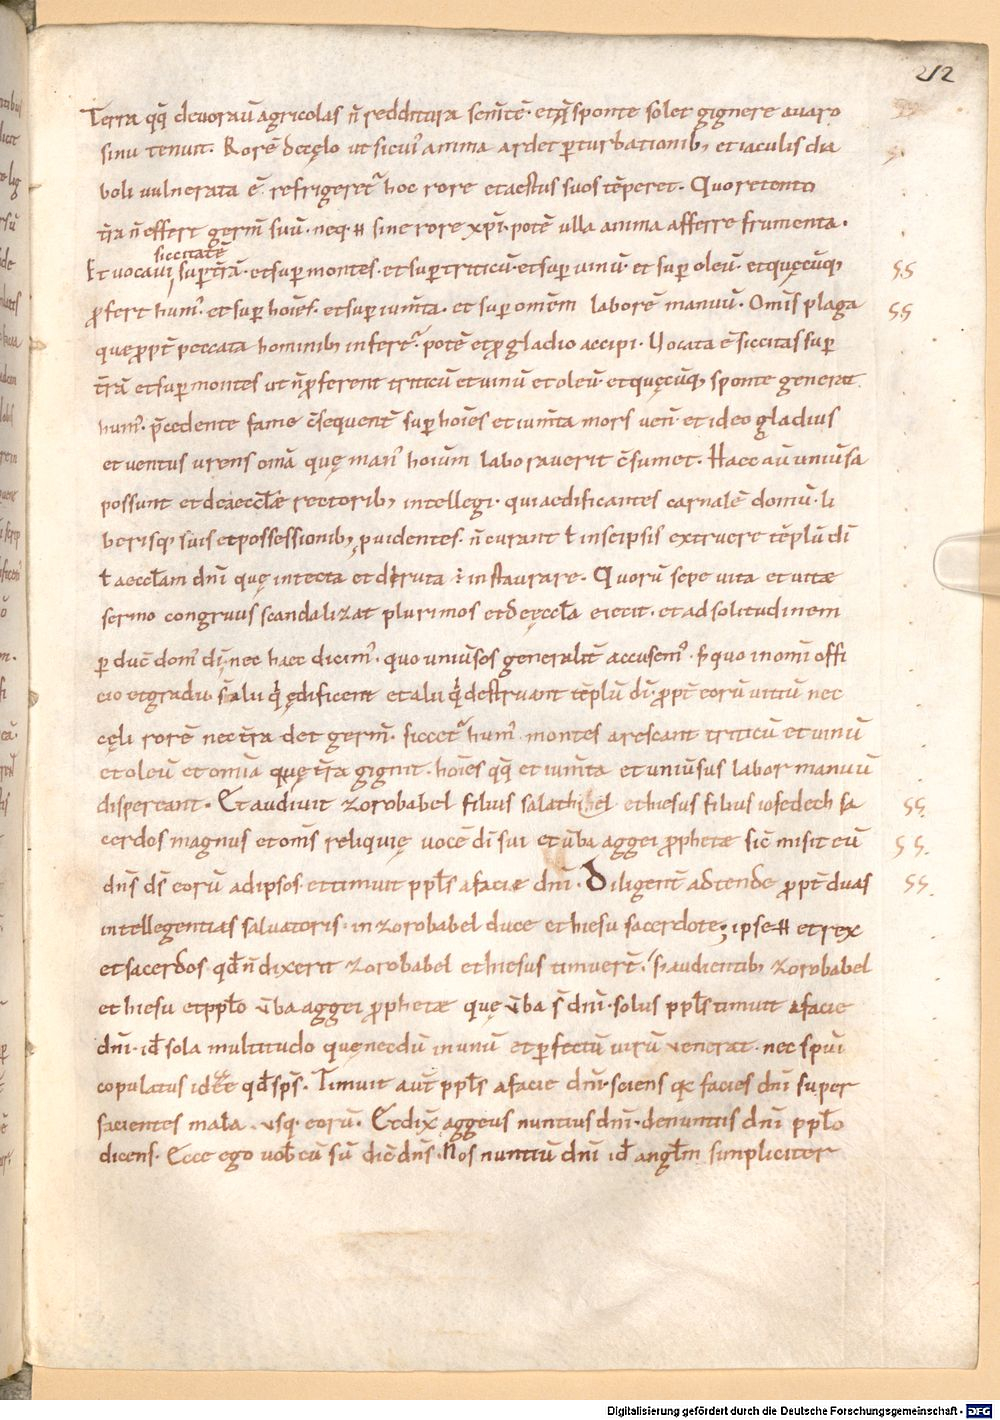 212
Terra qq̄ deuorau̅ agricolas n̄ redditura sem̅te̅. et q̄ sponte solet gignere auaro
sinu tenuit. Rore̅ de cęlo ut sicui᷒ anima ardet p̱turbationib; et iaculis dia
boli uulnerata e̅. refrigeret᷒ hoc rore et aestus suos te̅peret. Quo retento
t̅ra n̄ effert germ̅ suu̅. neq. н sine rore xp̅i. pote̅ ulla anima afferre frumenta.
siccitate̅
Et uocaui sup̱ t̅ra̅. et sup̱ montes. et sup̱ triticu̅. et sup̱ uinu̅. et sup̱ oleu̅. et quęcu̅q;
ꝓfert hum᷒. et sup̱ hoi̅es. et sup̱ ium̅ta. et sup̱ omem̅ labore̅ manuu̅. Omi̅s plaga
que ꝓpt̅ peccata hominib; infert᷒. pote̅ et ꝓ gladio accipi. Uocata e̅ siccitas sup̱
t̅ra̅ et sup̱ montes ut n̄ ꝓferent triticu̅ et uinu̅ et oleu̅. et quęcu̅q; sponte generat
hum᷒. p̅cedente fame c̅sequent̅ sup̱ hoi̅es et ium̅ta mors uen̅. et ideo gladius
et uentus urens oma̅ quę man᷒ hoium̅ laborauerit c̅sumet. Haec au̅ uniu̅sa
possunt et de aeccl̅ae rectorib; intellegi. qui aedificantes carnale̅ domu̅. li
berisq; suis et possessionib; ꝓuidentes. n̄ curant ł in se ipsis extruere te̅plu̅ di̅
ł aeccl̅am dn̅i quę intecta et diruta ÷ instaurare. Quoru̅ sepe uita et uitae
sermo congruus scandalizat plurimos et de ęccl̅a eiecit. et ad solitudinem
p̱duc̅ dom᷒ di̅. nec haec dicim᷒. quo uniu̅sos generalit̅ accusem᷒. s; quo in omi̅ offi
cio et gradu s̅ alii q̇ ędificent et alii q̇ destruant te̅plu̅ di̅. ꝓpt̅ eoru̅ uitiu̅ nec
cęli rore̅ nec t̅ra det germ̅. siccet᷒ hum᷒. montes arescant triticu̅ et uinu̅
et oleu̅ et omia̅ quę t̅ra gignit. hoi̅es qq̄ et ium̅ta et uniu̅sus labor manuu̅
dispereant. Et audiuit zorobabel filius salathihel et hiesus filius iosedech sa
cerdos magnus et omi̅s reliquię uoce̅ di̅ sui et u̅ba aggei ꝓphetae sic̅ misit eu̅
dn̅s ds̅ eoru̅ ad ipsos et timuit ppl̅s a facie dn̅i. Diligent̅ adtende ꝓpt̅ duas
intellegentias saluatoris. in zorobabel duce et hiesu sacerdote; ipse н et rex
et sacerdos. qd̅ n̄ dixerit zorobabel et hiesus timuer̅. s; audientib; zorobabel
et hiesu et ppl̅o u̅ba aggei ꝓphetae quę u̅ba s̅ dn̅i. solus ppl̅s timuit a facie
dn̅i. id̅ sola multitudo quę necdu̅ in unu̅ et p̱fectu̅ uiru̅ uenerat. nec sp̅ui
copulatus idē qd̅ sp̅s. Timuit aut̅ ppl̅s a facie dn̅i. sciens q̇ facies dn̅i super
facientes mala. usq. eoru̅. Et dix̅ aggeus nuntius dn̅i. de nuntiis dn̅i ppl̅o
dicens. Ecce ego uob̅cu̅ su̅ dic̅ dn̅s. Nos nuntiu̅ dn̅i id̅ angl̅m simpliciter
Digitalisierung gefördert durch die Deutsche Forschungsgemeinschaft - DFG